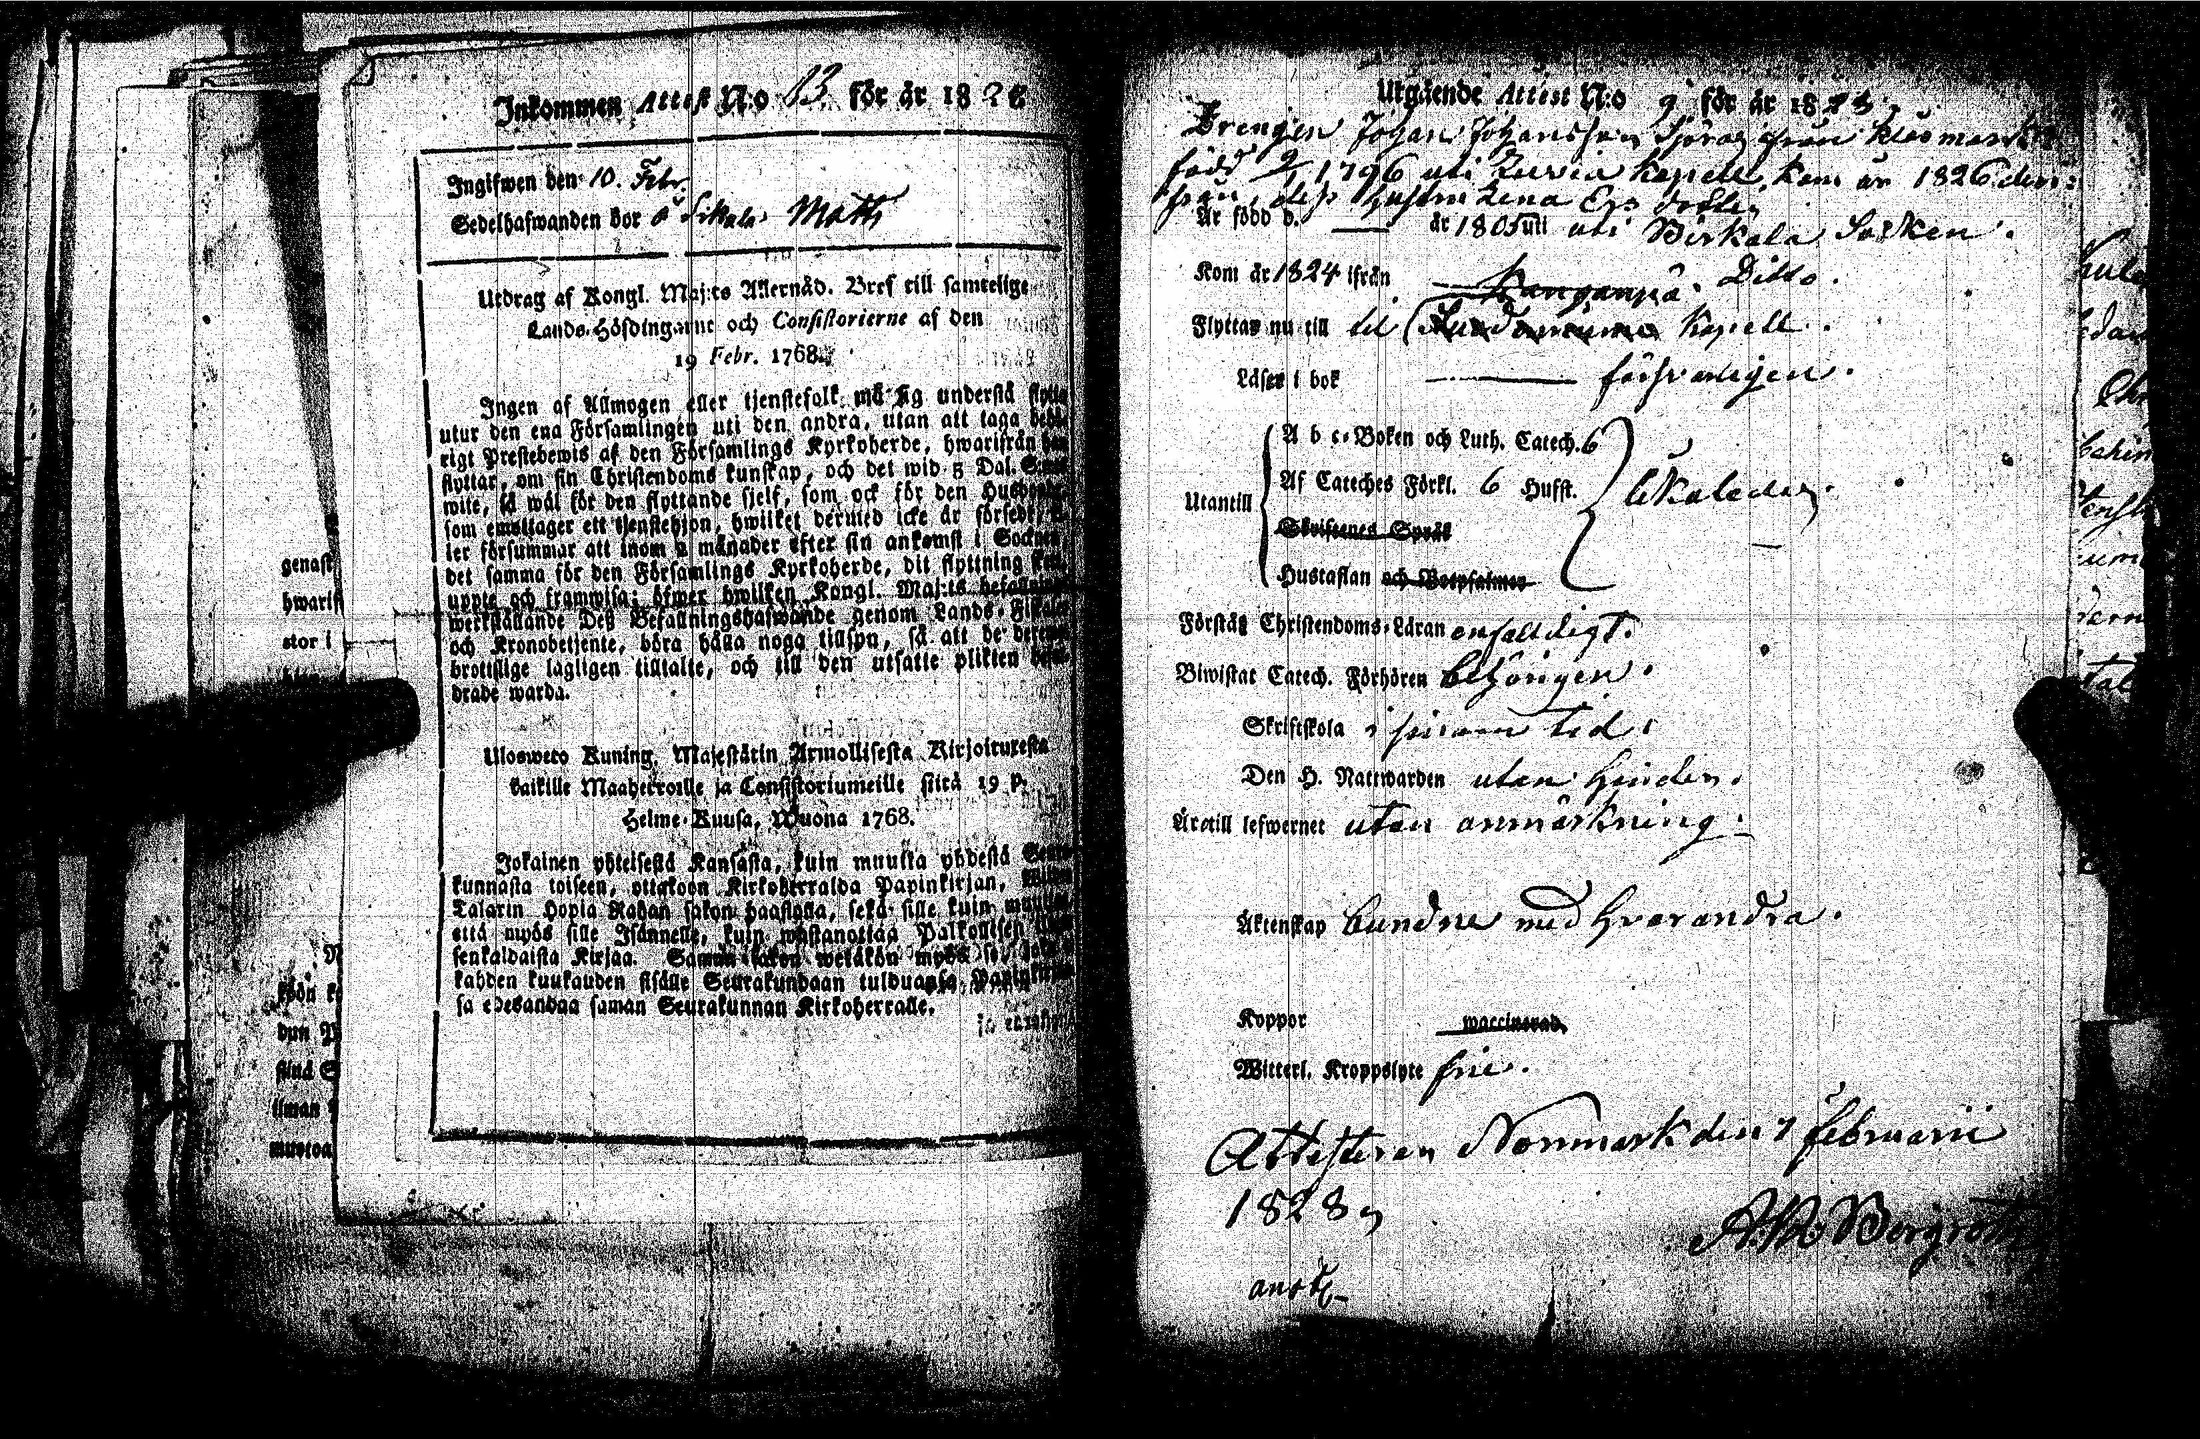 Inkommen Attest N:o 13. för år 1828
Ingifwen den 10. Febr.
Sedelhafwanden bor å Sikala Matts
Utdrag af Kongl. Maj:ts Allernåd. Bref till samtelige
Lands-Höfdingarne och Consistorierne af den
19 Febr. 1768.
Ingen af Allmogen eller tjenstefolk må sig understå flytta
utur den ena Församlingen uti den andra, utan att taga behö-
rigt Prestebewis af den Församlings Kyrkoherde, hwarifrån han
flyttar, om sin Christendoms kunskap, och det wid 5 Dal. S:mts
wite, så wäl för den flyttande sjelf, som ock för den Husbonde,
som emottager ett tjenstehjon, hwilket dermed icke är försedt,
ler försummar att inom 2 månader efter sin ankomst i Socknen,
det samma för den Församlings Kyrkoherde, dit flyttning sker,
uppte och framwisa; öfwer hwilken Kongl. Maj:ts befallning
werkställande Deß Befallningshafwande genom Lands-Fiskaler
och Kronobetjente, böra hålla noga tillsyn, så att de deremot
brottslige lagligen tilltalte, och till den utsatte plikten befor-
drade warda.
Uloswero Kuning. Majestätin Armollisesta Kirjoituxesta
kaikille Maaherroille ja Consistoriumeille siitä 19 p:
Helme-Kuusa, Wuona 1768.
Jokainen yhteisestä Kansasta, kuin muutta yhdestä Seura-
kunnasta toiseen, ottakoon Kirkoherralda Papinkirjan, Wiiden
Talarin Hopia Rahan sakon haastolla, sekä sille kuin muuttaa
että myös sille Isännelle, kuin wastanottaa Palkollisen
senkaldaista Kirjaa. Saman sakon wetäkön myös se, joka
kahden kuukauden sisälle Seurakundaan tulduansa, Papinkirjaa
sa edesandaa saman Seurakunnan Kirkoherralle.
genast
hwarif
stor i
Utgående Attest N:o 9 för år 1828,
Drengen Johan Johansson Sjörag från Klåsmark
född 9/1 1796 uti Luvia kapell, kom år 1826 der-
från, dess hustru Lena Ers dotter
Är född d. — år 1805 uti uti Birkala Socken.
Kom år 1824 ifrån Kanganpä. Ditto.
Flyttar nu till til Kapell.
Läser i bok — försvarligen.
A b c-Boken och Luth. Catech. 6
Af Cateches Förkl. 6 Hufst.
Utantill likaledes.
Skriftenes Språk
Hustaflan och Botpsalmer
Förstår Christendoms-Läran enfaldigt.
Biwistat Catech. Förhören behörigen.
Skriftskola i sinom tid.
Den H. Nattwarden utan hinder.
Äro till lefwernet utan anmärkning.
Äktenskap bundne med hvarandra.
Koppor waccinerad.
Witterl. Kroppslyte frie.
Attesteras Norrmark den 7 februarii
1828,
A. M. Bergroth